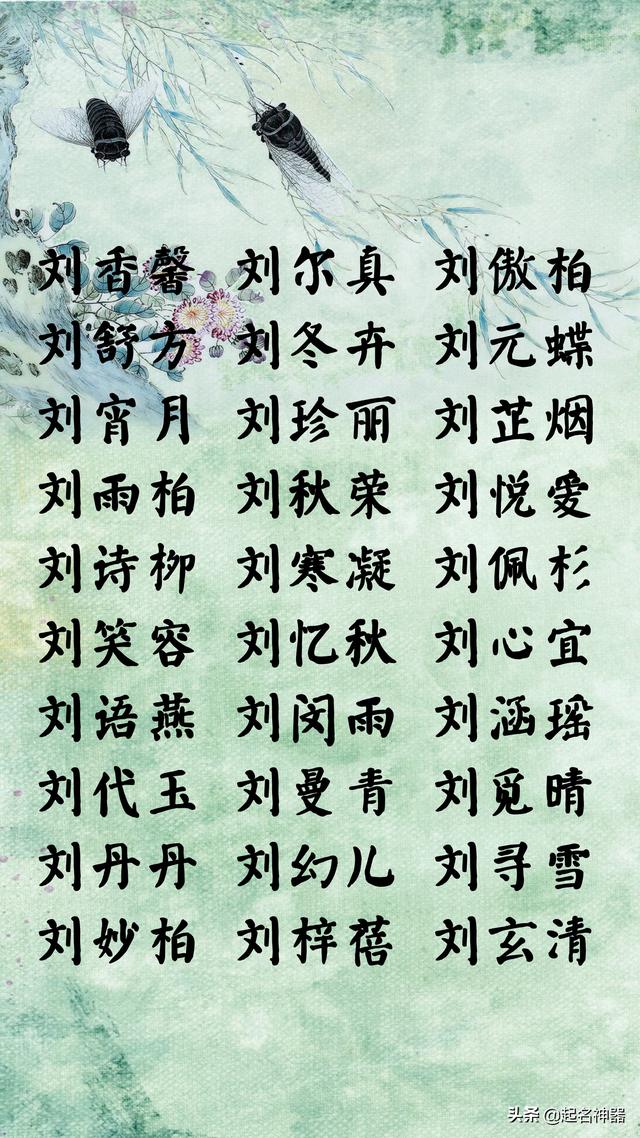 刘香馨 刘尔真 刘傲柏
刘舒方 刘冬卉 刘元蝶
刘宵月 刘珍丽 刘芷烟
刘雨柏 刘秋荣 刘悦爱
刘诗柳 刘寒凝 刘佩杉
刘笑容 刘忆秋 刘心宜
刘语燕 刘闵雨 刘涵瑶
刘代玉 刘曼青 刘觅晴
刘丹丹 刘幻儿 刘寻雪
刘妙柏 刘梓蓓 刘玄清
头条 @起名神器